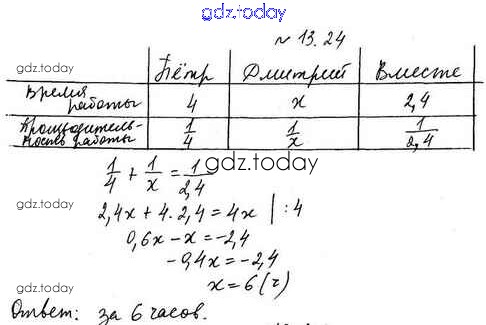 gdz.today
№ 13.24
Пётр Дмитрий Вместе
gdz.today
Время работы 4 x 2,4
Производительность работы 1/4 1/x 1/2,4
gdz.today
1/4 + 1/x = 1/2,4
gdz.today
2,4x + 4 · 2,4 = 4x | :4
0,6x - x = -2,4
-0,4x = -2,4
gdz.today
x = 6 (ч)
Ответ: за 6 часов.